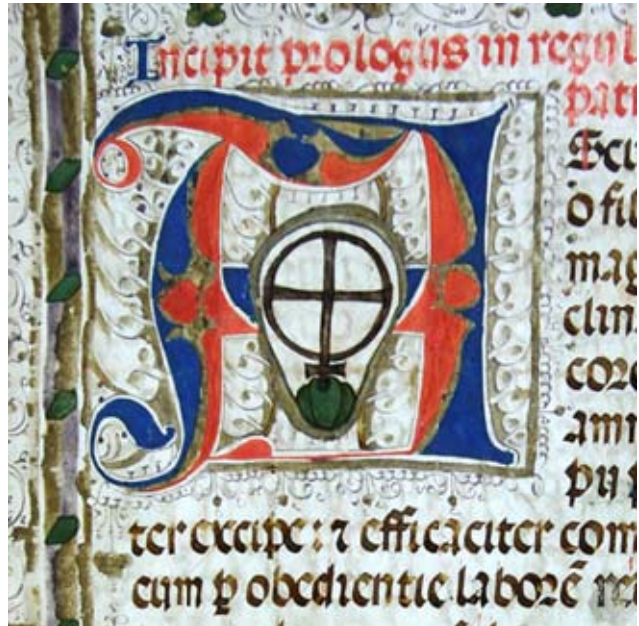 Incipit prologus in regul
pat
A
Scu
o fil
mag
clin
core
amm
pij
ter excipe : ⁊ efficaciter com
cum ꝑ obedientie laborē re